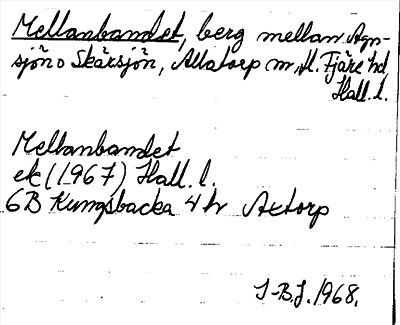 Mellanbandet, berg mellan Agn-
sjön o Skärsjön, Allatorp m, fl. Fjäre hd
Hall. l.
Mellanbandet
ek (1967) Hall. l.
6B Kungsbacka 4h Axtorp
I-B.J. 1968.